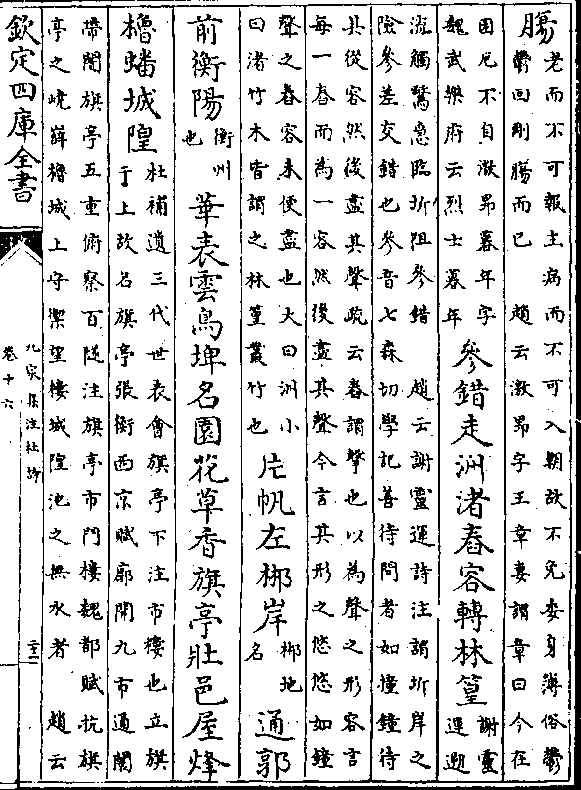 腸老而不可報主病而不可入朝故不免委身薄俗鬱
鬱回剛腸而已　趙云激昂字王章妻謂章曰今在
困戹不自激昻暮年字
魏武樂府云烈士暮年參錯走洲渚舂容轉林篁謝靈
運遡
流觸驚急臨圻阻參錯　趙云謝靈運詩注謂圻岸之
險參差交錯也參音七森切學記善待問者如撞鐘待
其從容然後盡其聲疏云舂謂擊也以為聲之形容言
每一舂而為一容然後盡其聲今言其形之悠悠如鐘
聲之舂容未便盡也大曰洲小
曰渚竹木皆謂之林篁叢竹也片帆左郴岸郴地
名通郭
前衡陽衡州
也華表雲鳥埤名園花草香旗亭壯邑屋烽
櫓蟠城隍杜補遺三代世表會旗亭下注市樓也立旗
于上故名旗亭張衡西京賦廓開九市通闤
帶闠旗亭五重俯察百隧注旗亭市門樓魏都賦抗旗
亭之嶢薛櫓城上守禦望樓城隍池之無水者　趙云
欽定四庫全書
九家集注杜詩
卷十六
二十一